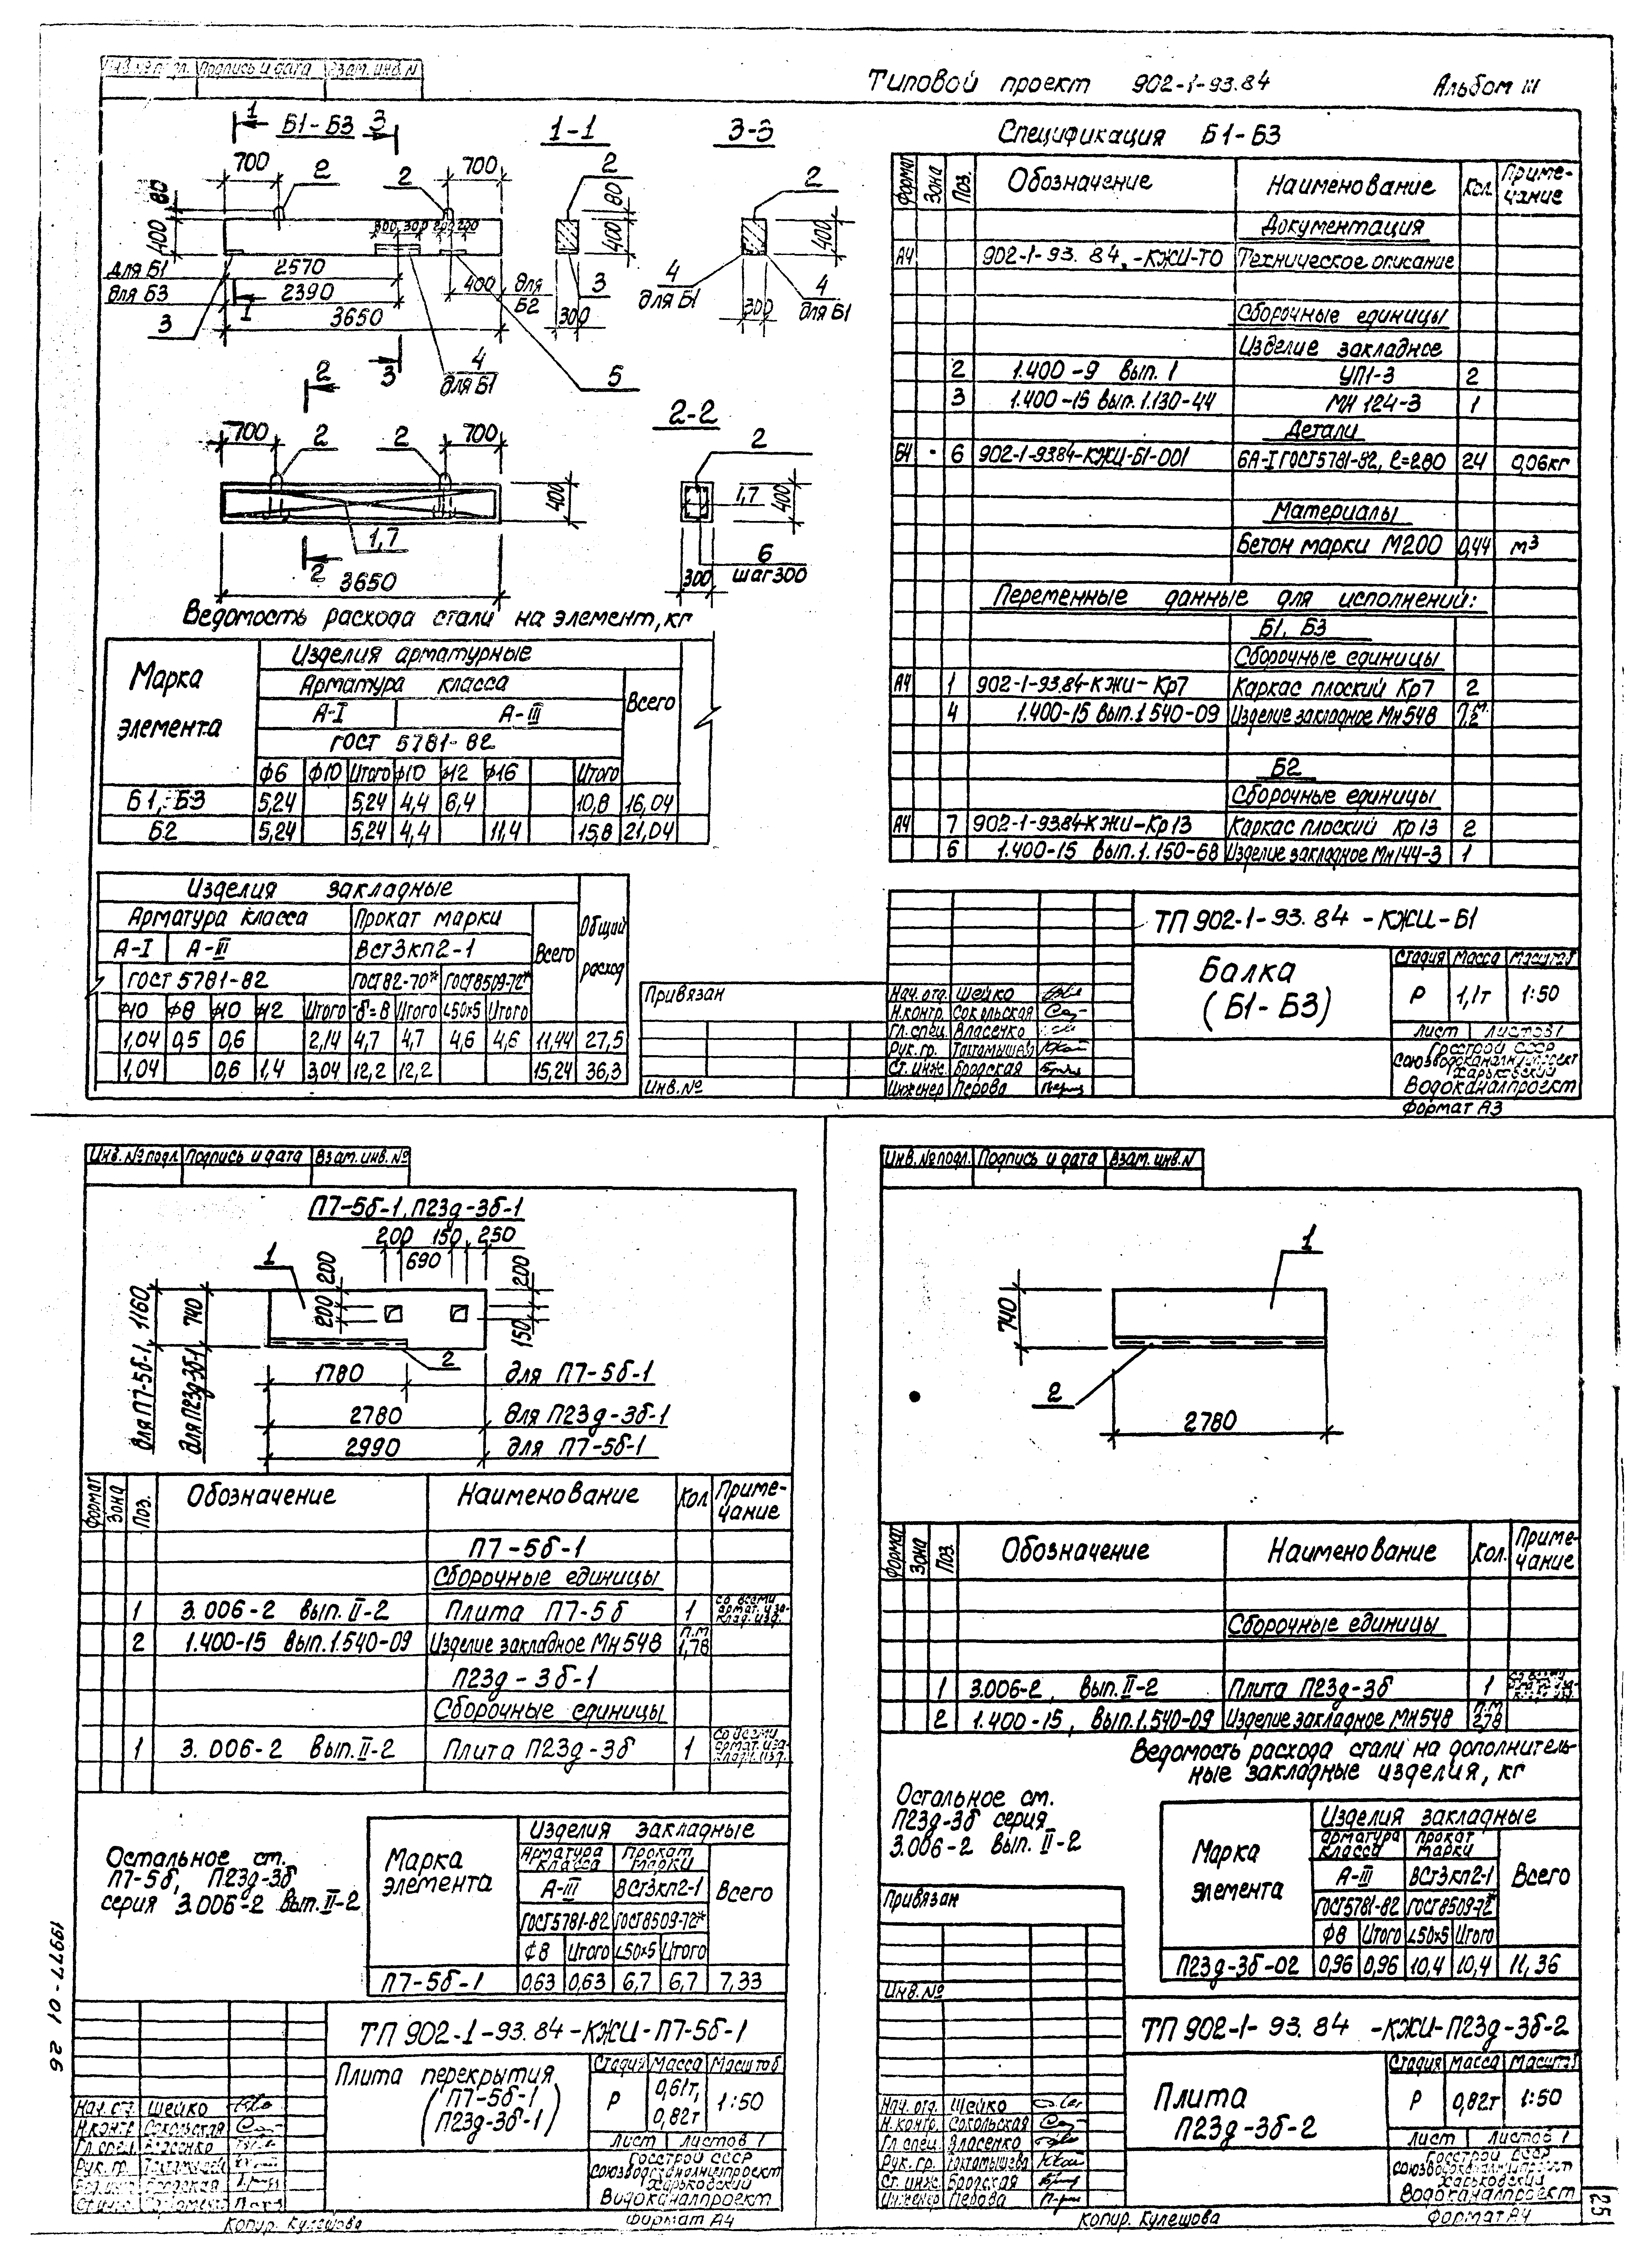 Типовой проект 902-1-93.84 Альбом III
Инв.№ подл. Подпись и дата Взам. инв. N
Б1-Б3
1-1
3-3
1 3
700 2 2 700
80
400
300 300 200 200
для Б1 2570
для Б3 2390
400 для Б2
3650
3
4
для Б1
5
2 80 400 3 300
2 400
4
для Б1
300
4
для Б1
2 3
700 2 2 700
400
1,7
2
3650
2-2
2
1,7
400
6
шаг 300
300
Спецификация Б1-Б3
Формат Зона Поз. Обозначение Наименование Кол. Примечание
Документация
А4 902-1-93.84.-КЖИ-ТО Техническое описание
Сборочные единицы
Изделие закладное
2 1.400-9 вып. 1 УП1-3 2
3 1.400-15 вып. 1.130-44 МН 124-3 1
Детали
Б4 6 902-1-9384-КЖИ-Б1-001 6А-I ГОСТ5781-82, ℓ=280 24 0,06кг
Материалы
Бетон марки М200 0,44 м3
Переменные данные для исполнений:
Б1, Б3
Сборочные единицы
А4 1 902-1-93.84-КЖИ-Кр7 Каркас плоский Кр7 2
4 1.400-15 вып.1 540-09 Изделие закладное Мн548
Б2
Сборочные единицы
А4 7 902-1-93.84-КЖИ-Кр13 Каркас плоский Кр13 2
6 1.400-15 вып.1.150-68 Изделие закладное Мн144-3 1
Ведомость расхода стали на элемент, кг
Марка элемента
Изделия арматурные
Арматура класса
А-I А-III Всего
ГОСТ 5781-82
ф6 ф10 Итого ф10 ф12 ф16 Итого
Б1, Б3 5,24 5,24 4,4 6,4 10,8 16,04
Б2 5,24 5,24 4,4 11,4 15,8 21,04
Изделия закладные
Арматура класса Прокат марки Всего Общий расход
А-I А-III ВСт3кп2-1
ГОСТ 5781-82 ГОСТ82-70* ГОСТ8509-72*
ф10 ф8 ф10 ф12 Итого -δ=8 Итого L50х5 Итого
1,04 0,5 0,6 2,14 4,7 4,7 4,6 4,6 11,44 27,5
1,04 0,6 1,4 3,04 12,2 12,2 15,24 36,3
Привязан
Инв.№
ТП 902-1-93.84-КЖИ-Б1
Балка
(Б1-Б3)
Стадия Масса Масштаб
Р 1,1т 1:50
Лист Листов 1
Нач. отд. Шейко
Н.контр. Сокольская
Гл. спец. Власенко
Рук. гр. Тахтамышева
Ст. инж. Бродская
Инженер Перова
Госстрой СССР
Союзводоканалниипроект
Харьковский
Водоканалпроект
Формат А3
Инв.№ подл. Подпись и дата Взам. инв. №
П7-5б-1, П23д-3б-1
200 150 250
690
1 200 200
200 150
для П7-5б-1, 1160
для П23д-3б-1 740
2
1780 для П7-5б-1
2780 для П23д-3б-1
2990 для П7-5б-1
Формат Зона Поз. Обозначение Наименование Кол Примечание
П7-5б-1
Сборочные единицы
1 3.006-2 вып. II-2 Плита П7-5б 1 со всеми армат. и заклад. изд.
2 1.400-15 вып.1.540-09 Изделие закладное Мн548 п.м 1,78
П23д-3б-1
Сборочные единицы
1 3.006-2 вып. II-2 Плита П23д-3б 1 со всеми армат. и заклад. изд.
Остальное см.
П7-5б, П23д-3б
серия 3.006-2 вып. II-2
Марка элемента
Изделия закладные
Арматура класса Прокат марки
А-III ВСт3кп2-1 Всего
ГОСТ5781-82 ГОСТ8509-72*
ф8 Итого L50х5 Итого
П7-5б-1 0,63 0,63 6,7 6,7 7,33
ТП 902-1-93.84-КЖИ-П7-5б-1
Плита перекрытия
(П7-5б-1
П23д-3б-1)
Стадия Масса Масштаб
Р 0,61т, 0,82т 1:50
Лист Листов 1
Нач. отд. Шейко
Н.контр Сокольская
Гл. спец. Власенко
Рук. гр.
Госстрой СССР
Союзводоканалниипроект
Харьковский
Водоканалпроект
Копир. Кулешова
Формат А4
19977-01 26
Инв.№ подл. Подпись и дата Взам. инв. N
1
740
2
2780
Формат Зона Поз. Обозначение Наименование Кол. Примечание
Сборочные единицы
1 3.006-2, вып. II-2 Плита П23д-3б 1
2 1.400-15, вып.1.540-09 Изделие закладное Мн548 п.м 2,78
Ведомость расхода стали на дополнитель-
ные закладные изделия, кг
Остальное см.
П23д-3б серия
3.006-2 вып. II-2
Марка элемента
Изделия закладные
Арматура класса Прокат марки
А-III ВСт3кп2-1 Всего
ГОСТ5781-82 ГОСТ8509-72*
ф8 Итого L50х5 Итого
П23д-3б-02 0,96 0,96 10,4 10,4 11,36
Привязан
Инв.№
ТП 902-1-93.84 -КЖИ-П23д-3б-2
Плита
П23д-3б-2
Стадия Масса Масштаб
Р 0,82т 1:50
Лист Листов 1
Нач. отд. Шейко
Н.контр. Сокольская
Гл спец. Власенко
Рук. гр. Тахтамышева
Ст. инж. Бродская
Инженер Перова
Госстрой СССР
Союзводоканалниипроект
Харьковский
Водоканалпроект
Копир. Кулешова
Формат А4
25